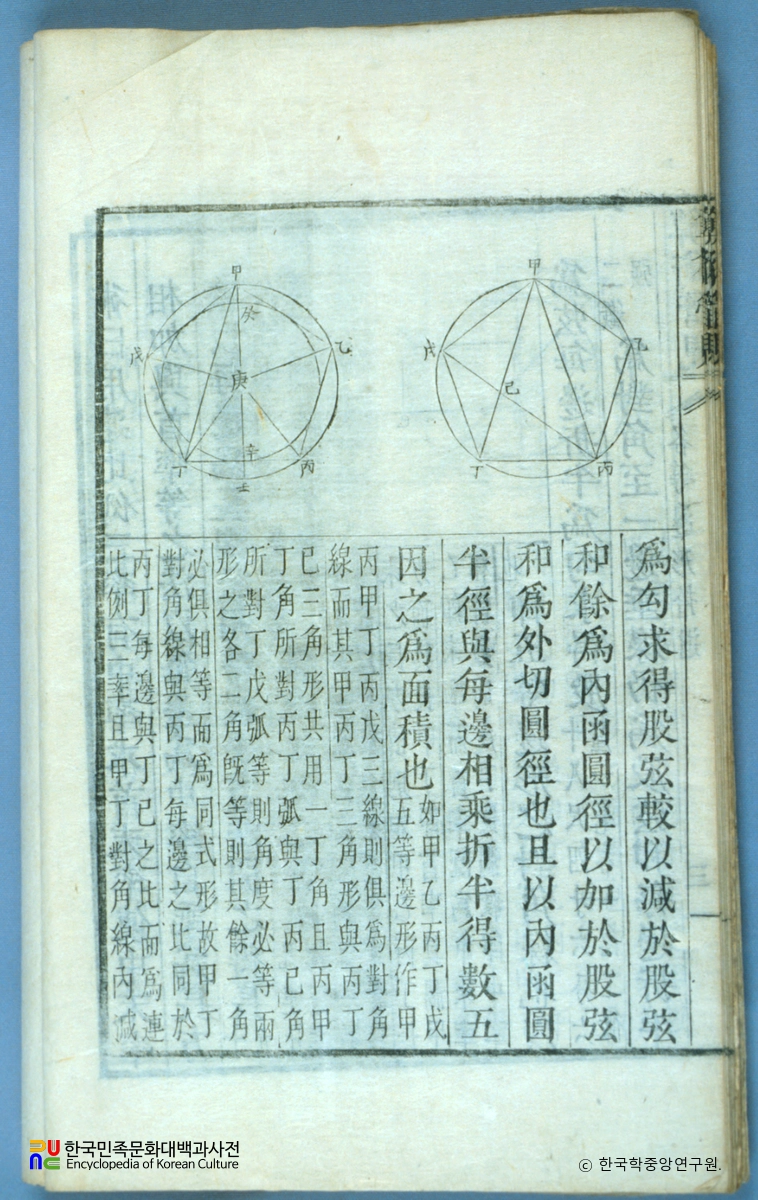 甲
乙
丙
丁
戊
己
甲
乙
丙
丁
戊
庚
辛
壬
癸
爲勾求得股弦較以減於股弦
和餘爲內函圓徑以加於股弦
和爲外切圓徑也且以內函圓
半徑與每邊相乘折半得數五
因之爲面積也如甲乙丙丁戊
五等邊形作甲
丙甲丁丙戊三線則俱爲對角
線而其甲丙丁三角形與丙丁
己三角形共用一丁角且丙甲
丁角所對丙丁弧與丁丙己角
所對丁戊弧等則角度必等兩
形之各二角旣等則其餘一角
必俱相等而爲同式形故甲丁
對角線與丙丁每邊之比同於
丙丁每邊與丁己之比而爲連
比例三率且甲丁對角線內減
한국민족문화대백과사전
Encyclopedia of Korean Culture
ⓒ 한국학중앙연구원.